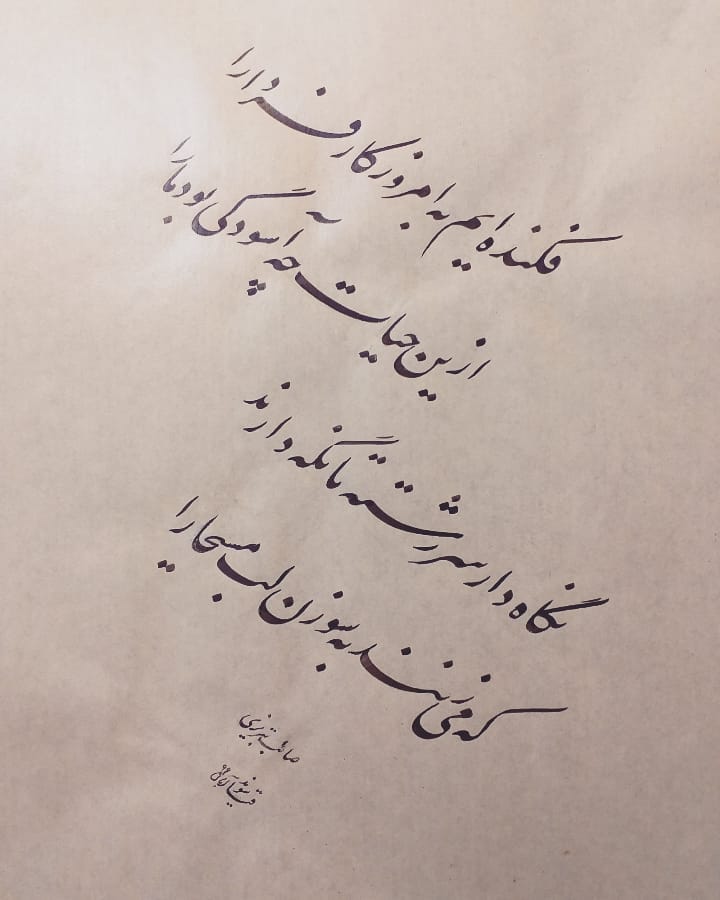 فکنده‌ایم به امروز کار فردا را
ازین حیات چه آسودگی بود ما را
نگاه دار سر رشته تا نگه دارند
که می‌زنند به سوزن لب مسیحا را
صائب تبریزی